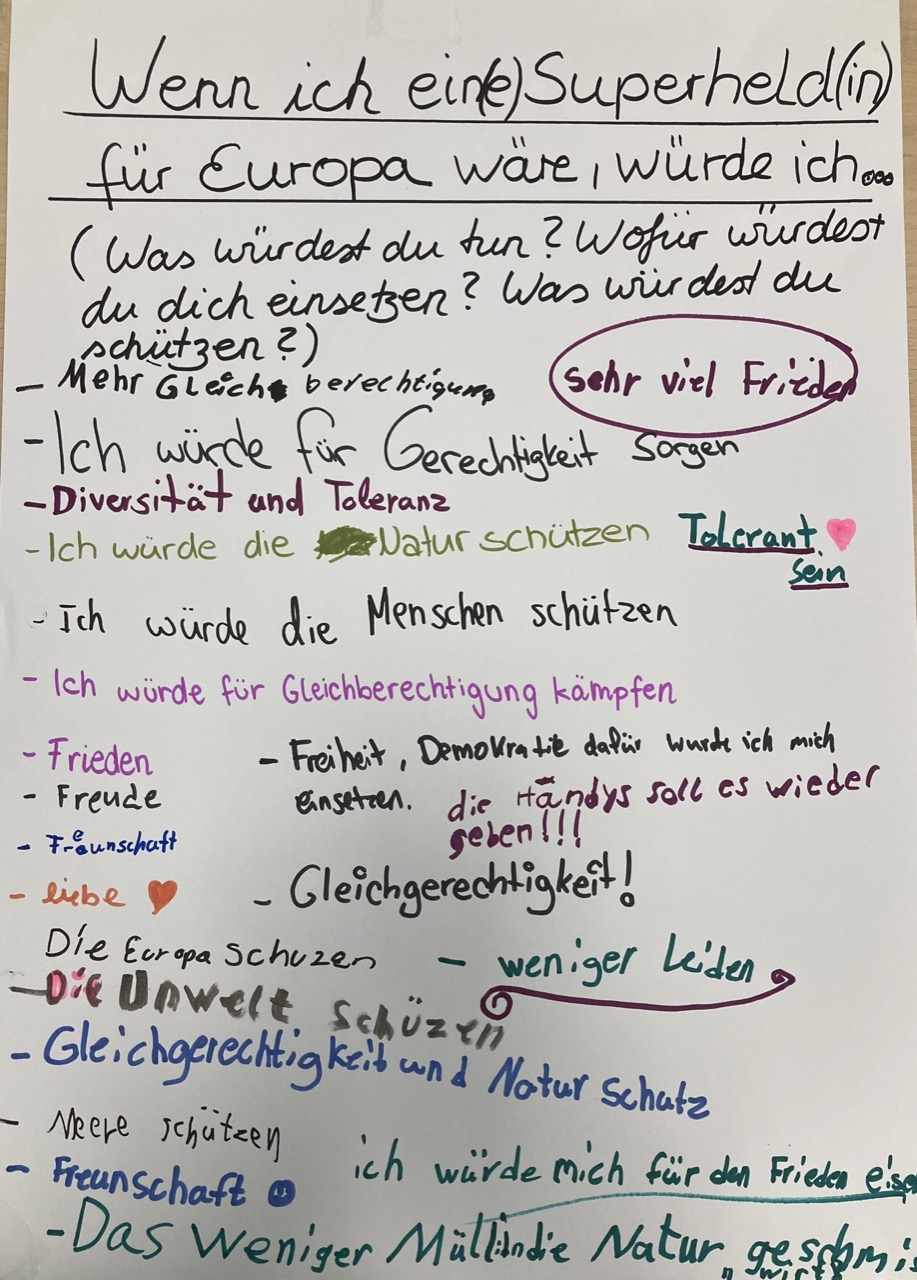 Wenn ich ein(e) Superheld(in)
für Europa wäre, würde ich...
(Was würdest du tun? Wofür würdest
du dich einsetzen? Was würdest du
schützen?)
- Mehr Gleich berechtigung
sehr viel Frieden
- Ich würde für Gerechtigkeit sorgen
- Diversität und Toleranz
- Ich würde die Natur schützen
Tolerant
sein
- Ich würde die Menschen schützen
- Ich würde für Gleichberechtigung kämpfen
- Frieden
- Freude
- Freunschaft
- liebe
- Freiheit, Demokratie dafür wurde ich mich
einsetzen.
die Händys soll es wieder
geben!!!
- Gleichgerechtigkeit!
Die Europa schuzen
- weniger Leiden
- Die Unwelt schüzen
- Gleichgerechtigkeit und Natur schutz
- Meere schützen
- Freunschaft
ich würde mich für den Frieden
- Das weniger Müll in die Natur